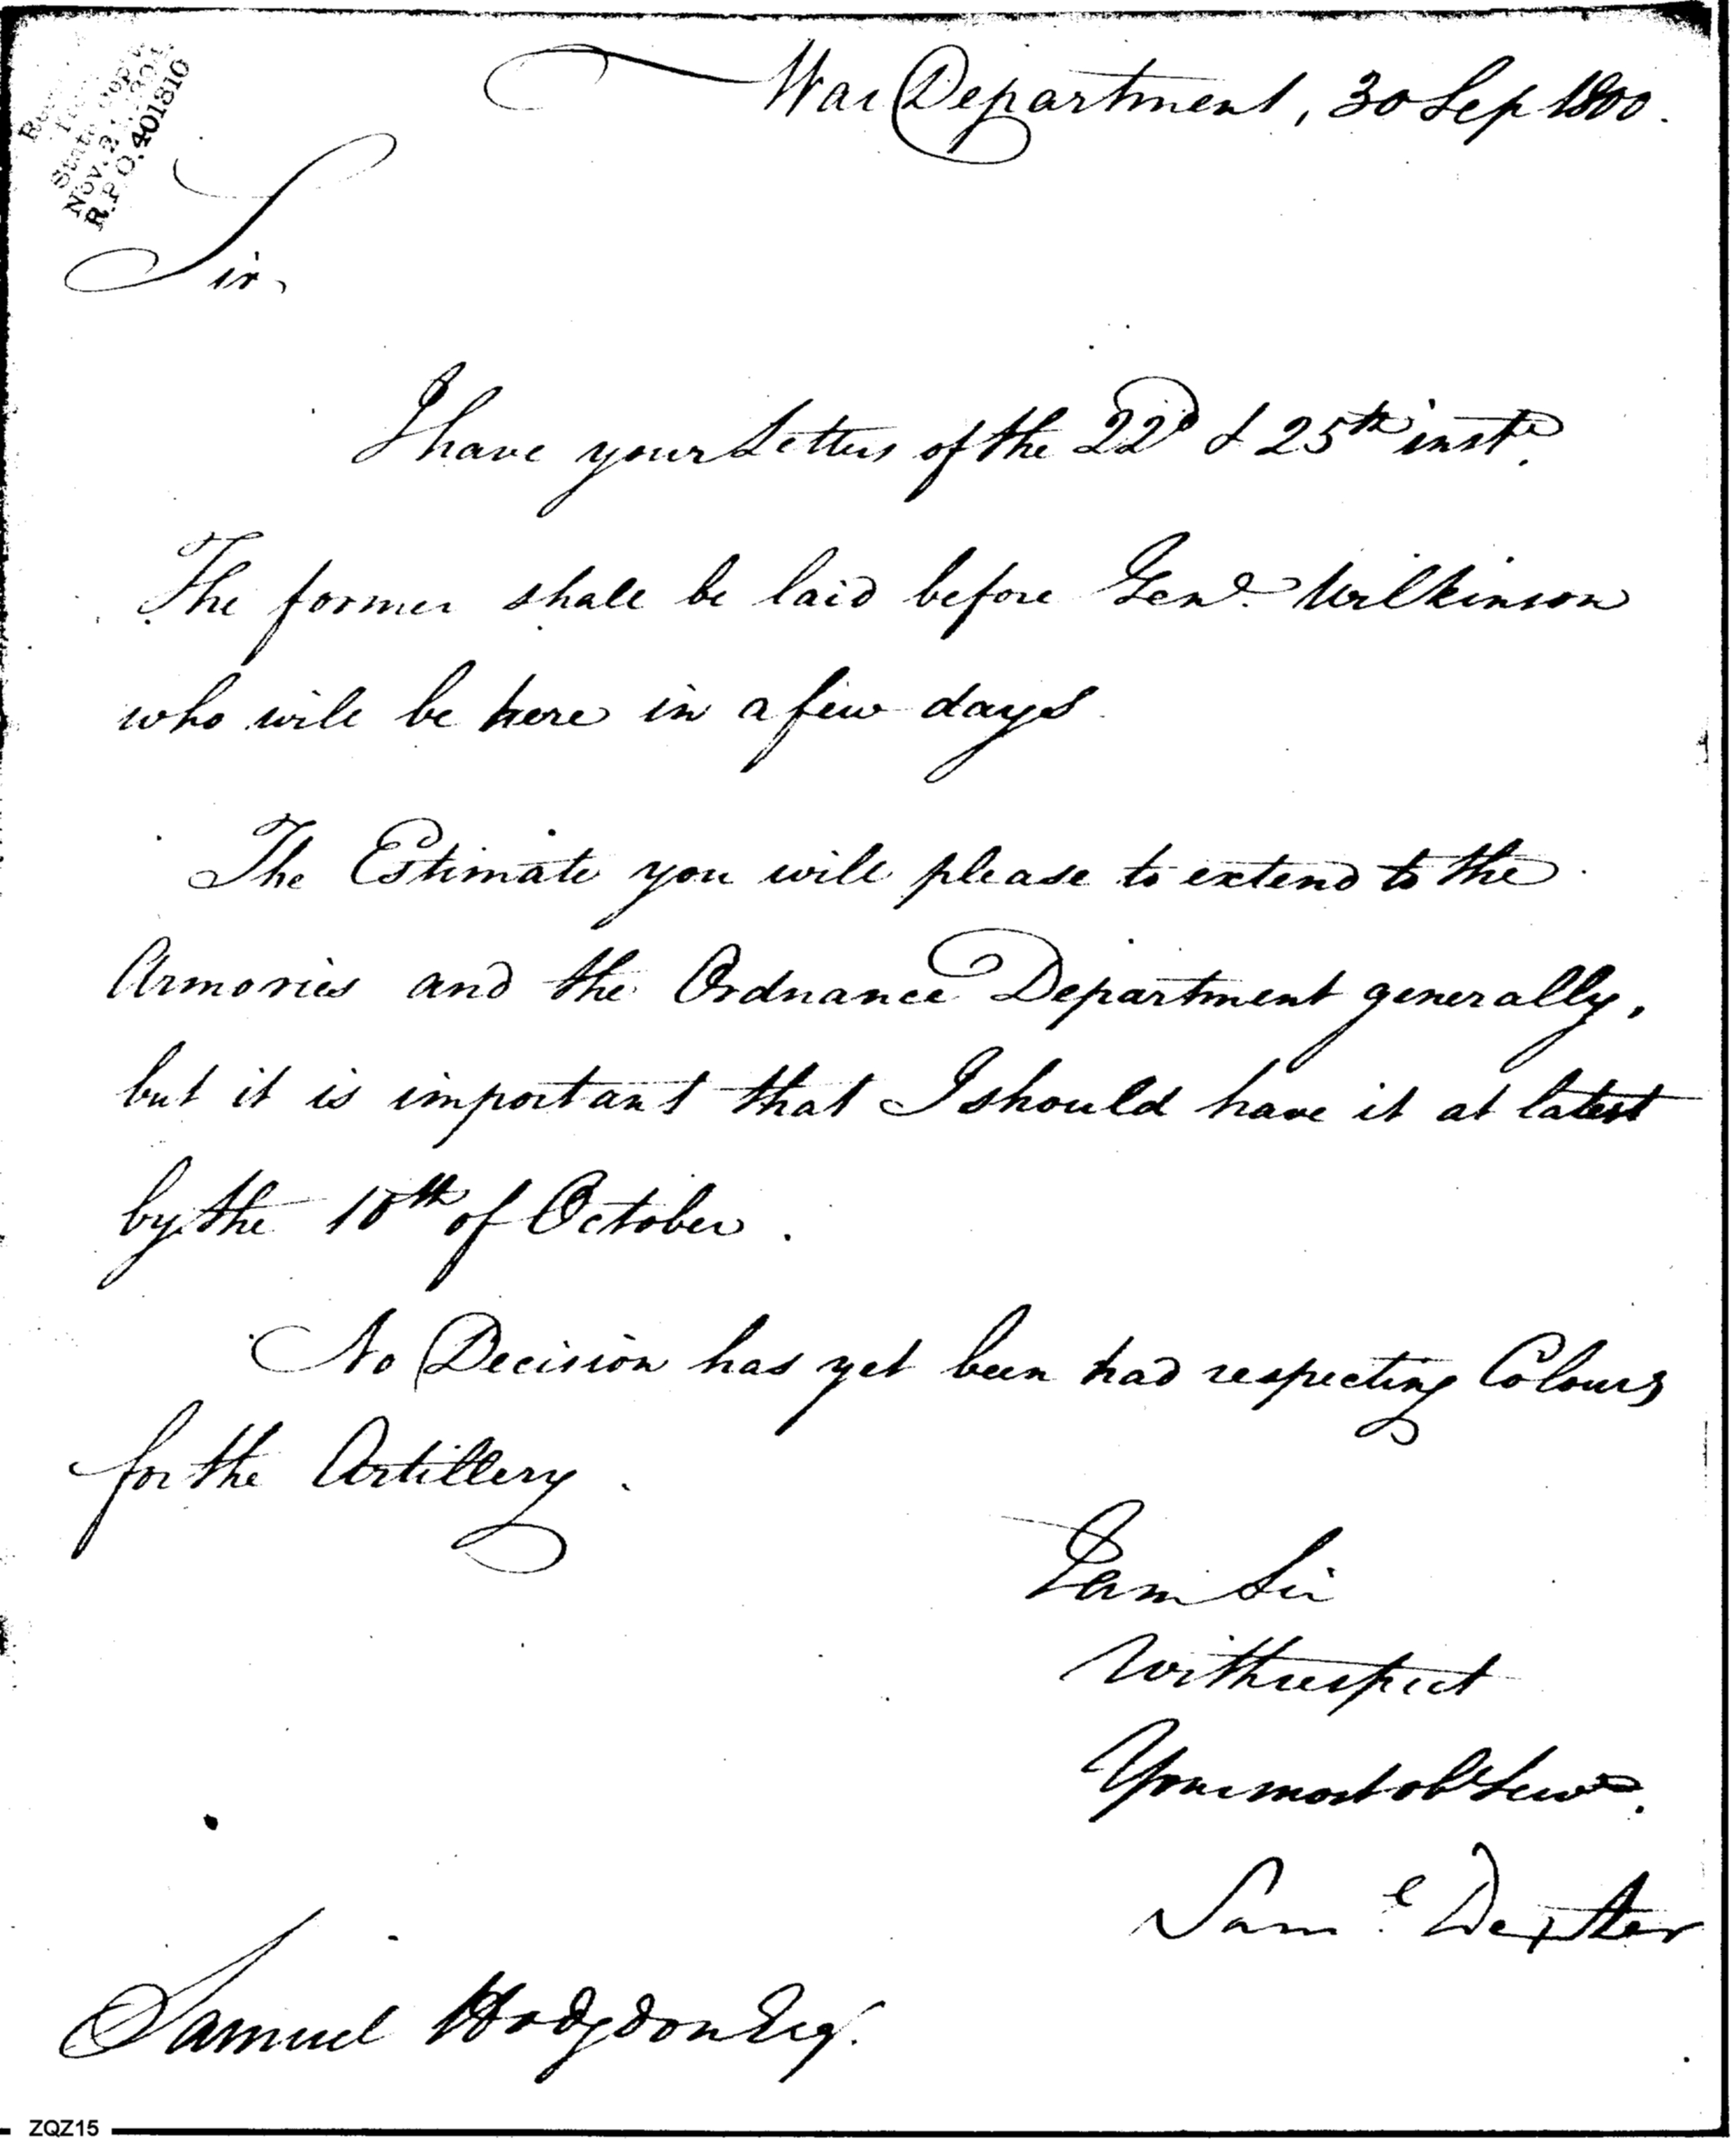 War Department, 30 Sep 1800.
State Dept.
Nov. 2
R.P.O. 401810
Sir,
I have your Letters of the 22d & 25th inst.
The former shall be laid before Genl. Wilkinson
who will be here in a few days.
The Estimate you will please to extend to the
Armories and the Ordnance Department generally,
but it is important that I should have it at latest
by the 10th of October.
No Decision has yet been had respecting Colours
for the Artillery.
I am Sir
With respect
Your most ob Serv.
Saml. Dexter
Samuel Hodgdon Esq.
ZQZ15